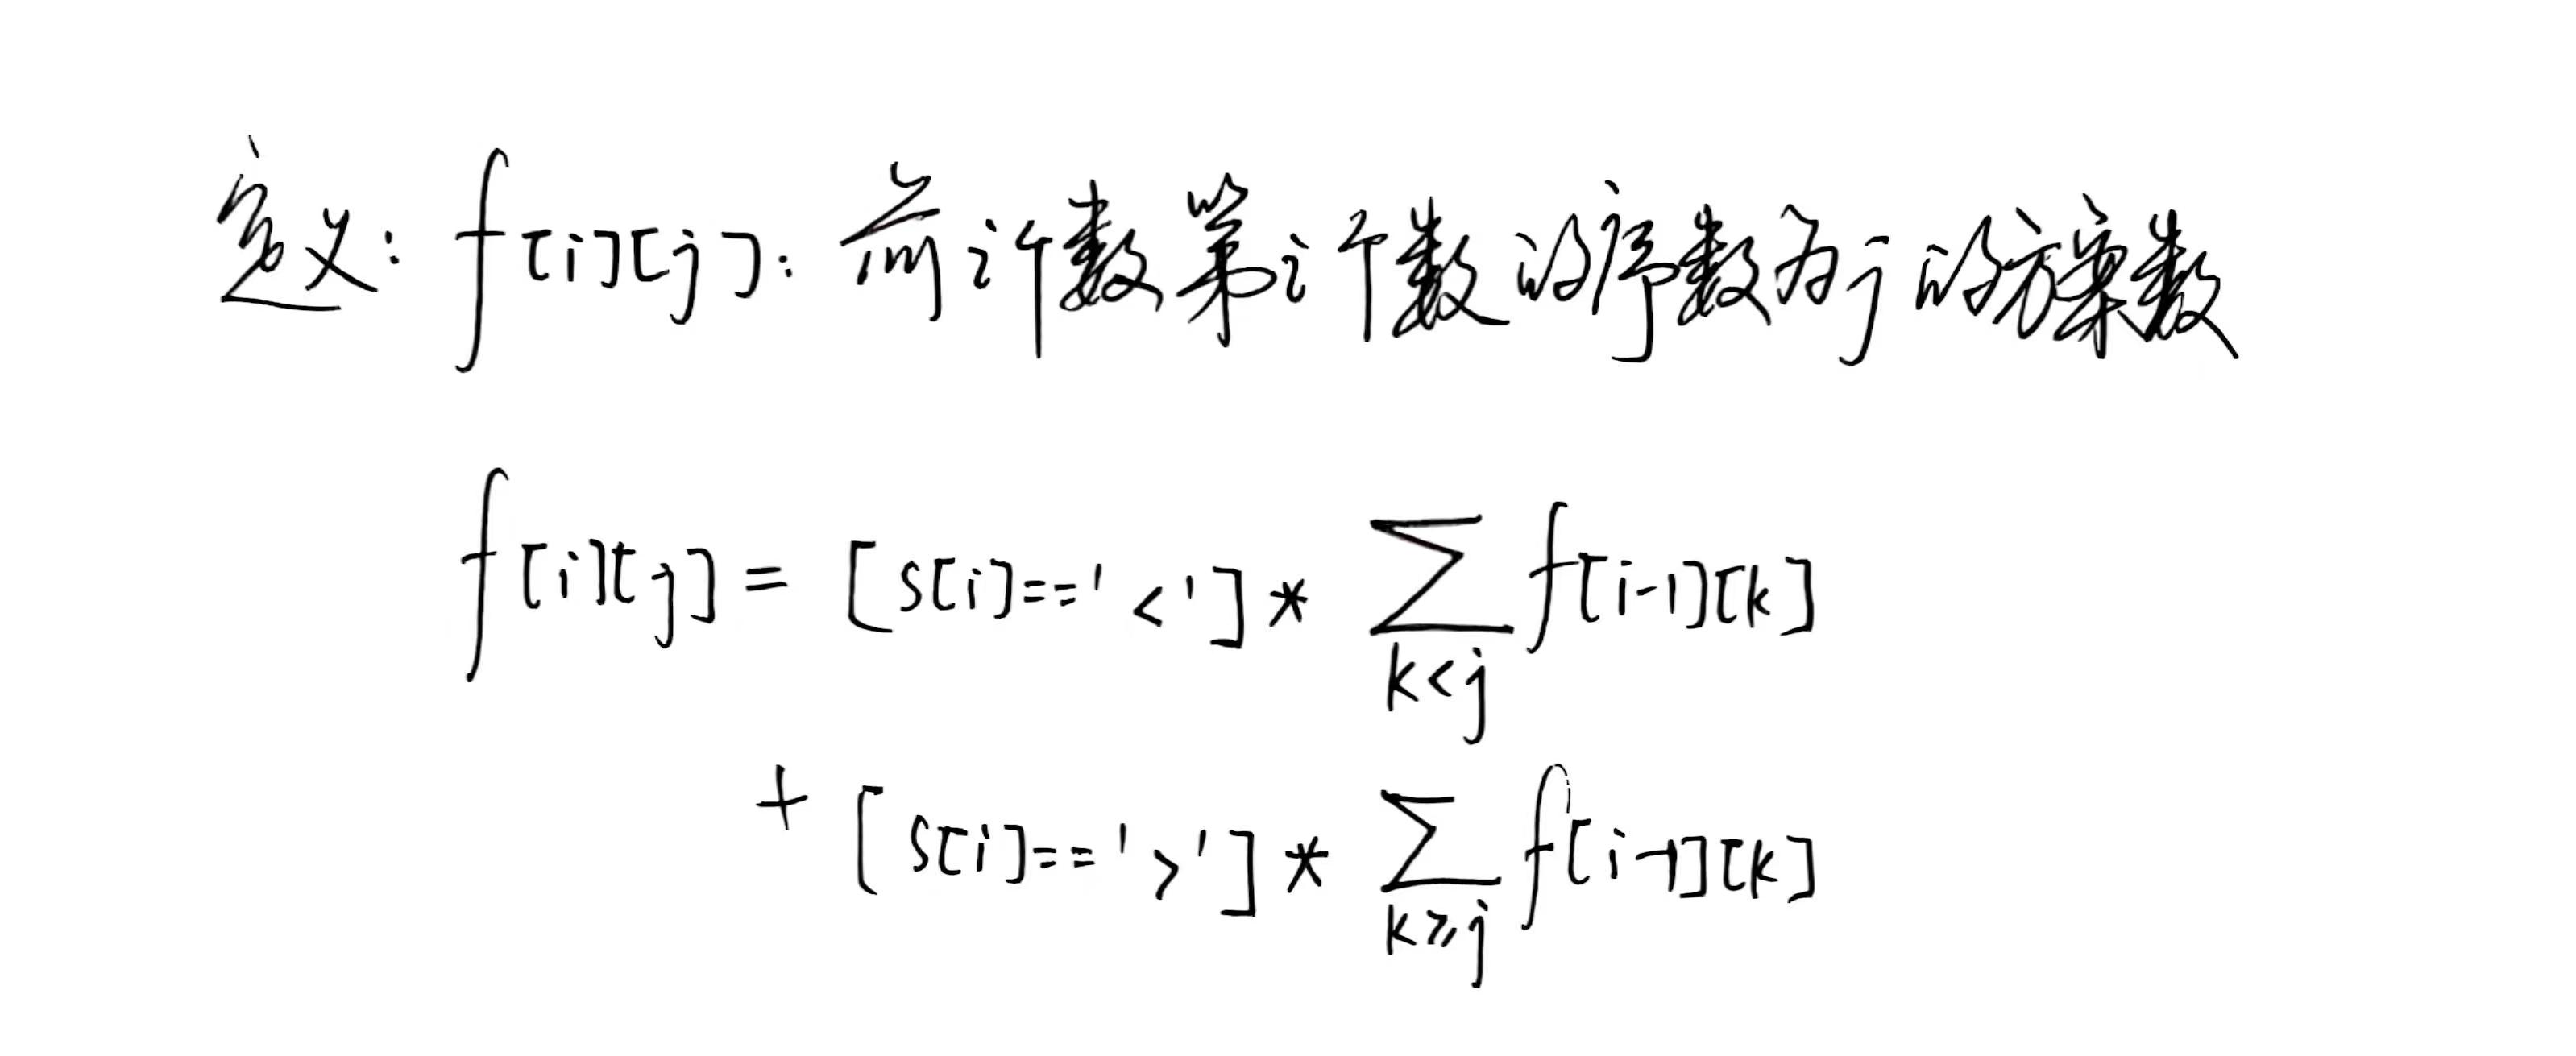 定义: f[i][j]: 前i个数第i个数的序数为j的方案数
f[i][j] = [s[i]=='<'] * ∑ f[i-1][k]
k<j
+ [s[i]=='>'] * ∑ f[i-1][k]
k⩾j